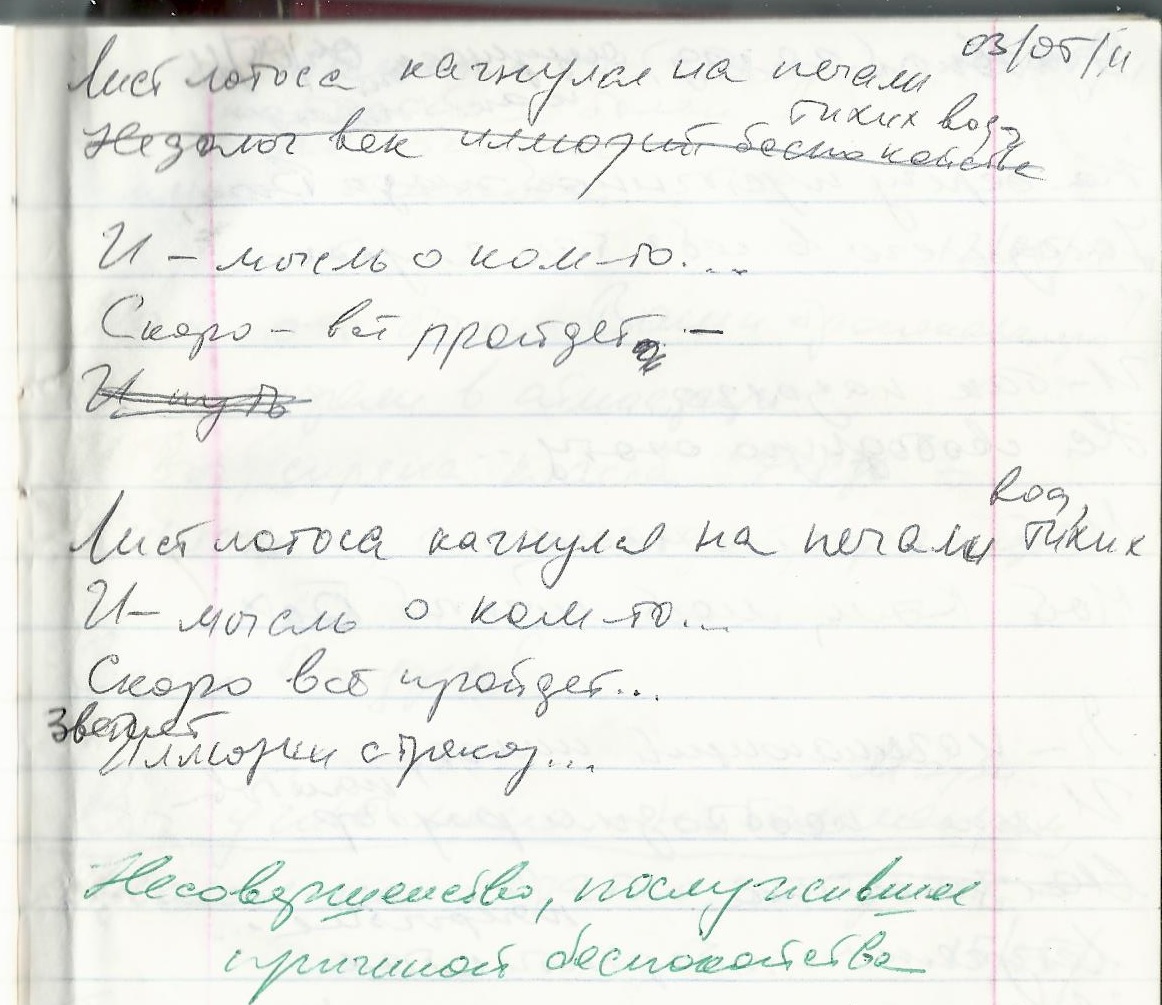 03/05/11
Лист лотоса качнулся на печали
тихих вод,
Недолог век иллюзий беспокойства
И – мысль о ком-то...
Скоро – всё пройдет –
И путь
Лист лотоса качнулся на печали тихих
вод,
И – мысль о ком-то...
Скоро всё пройдет...
Иллюзии стрекоз...
Несовершенство, послужившее
причиной беспокойства